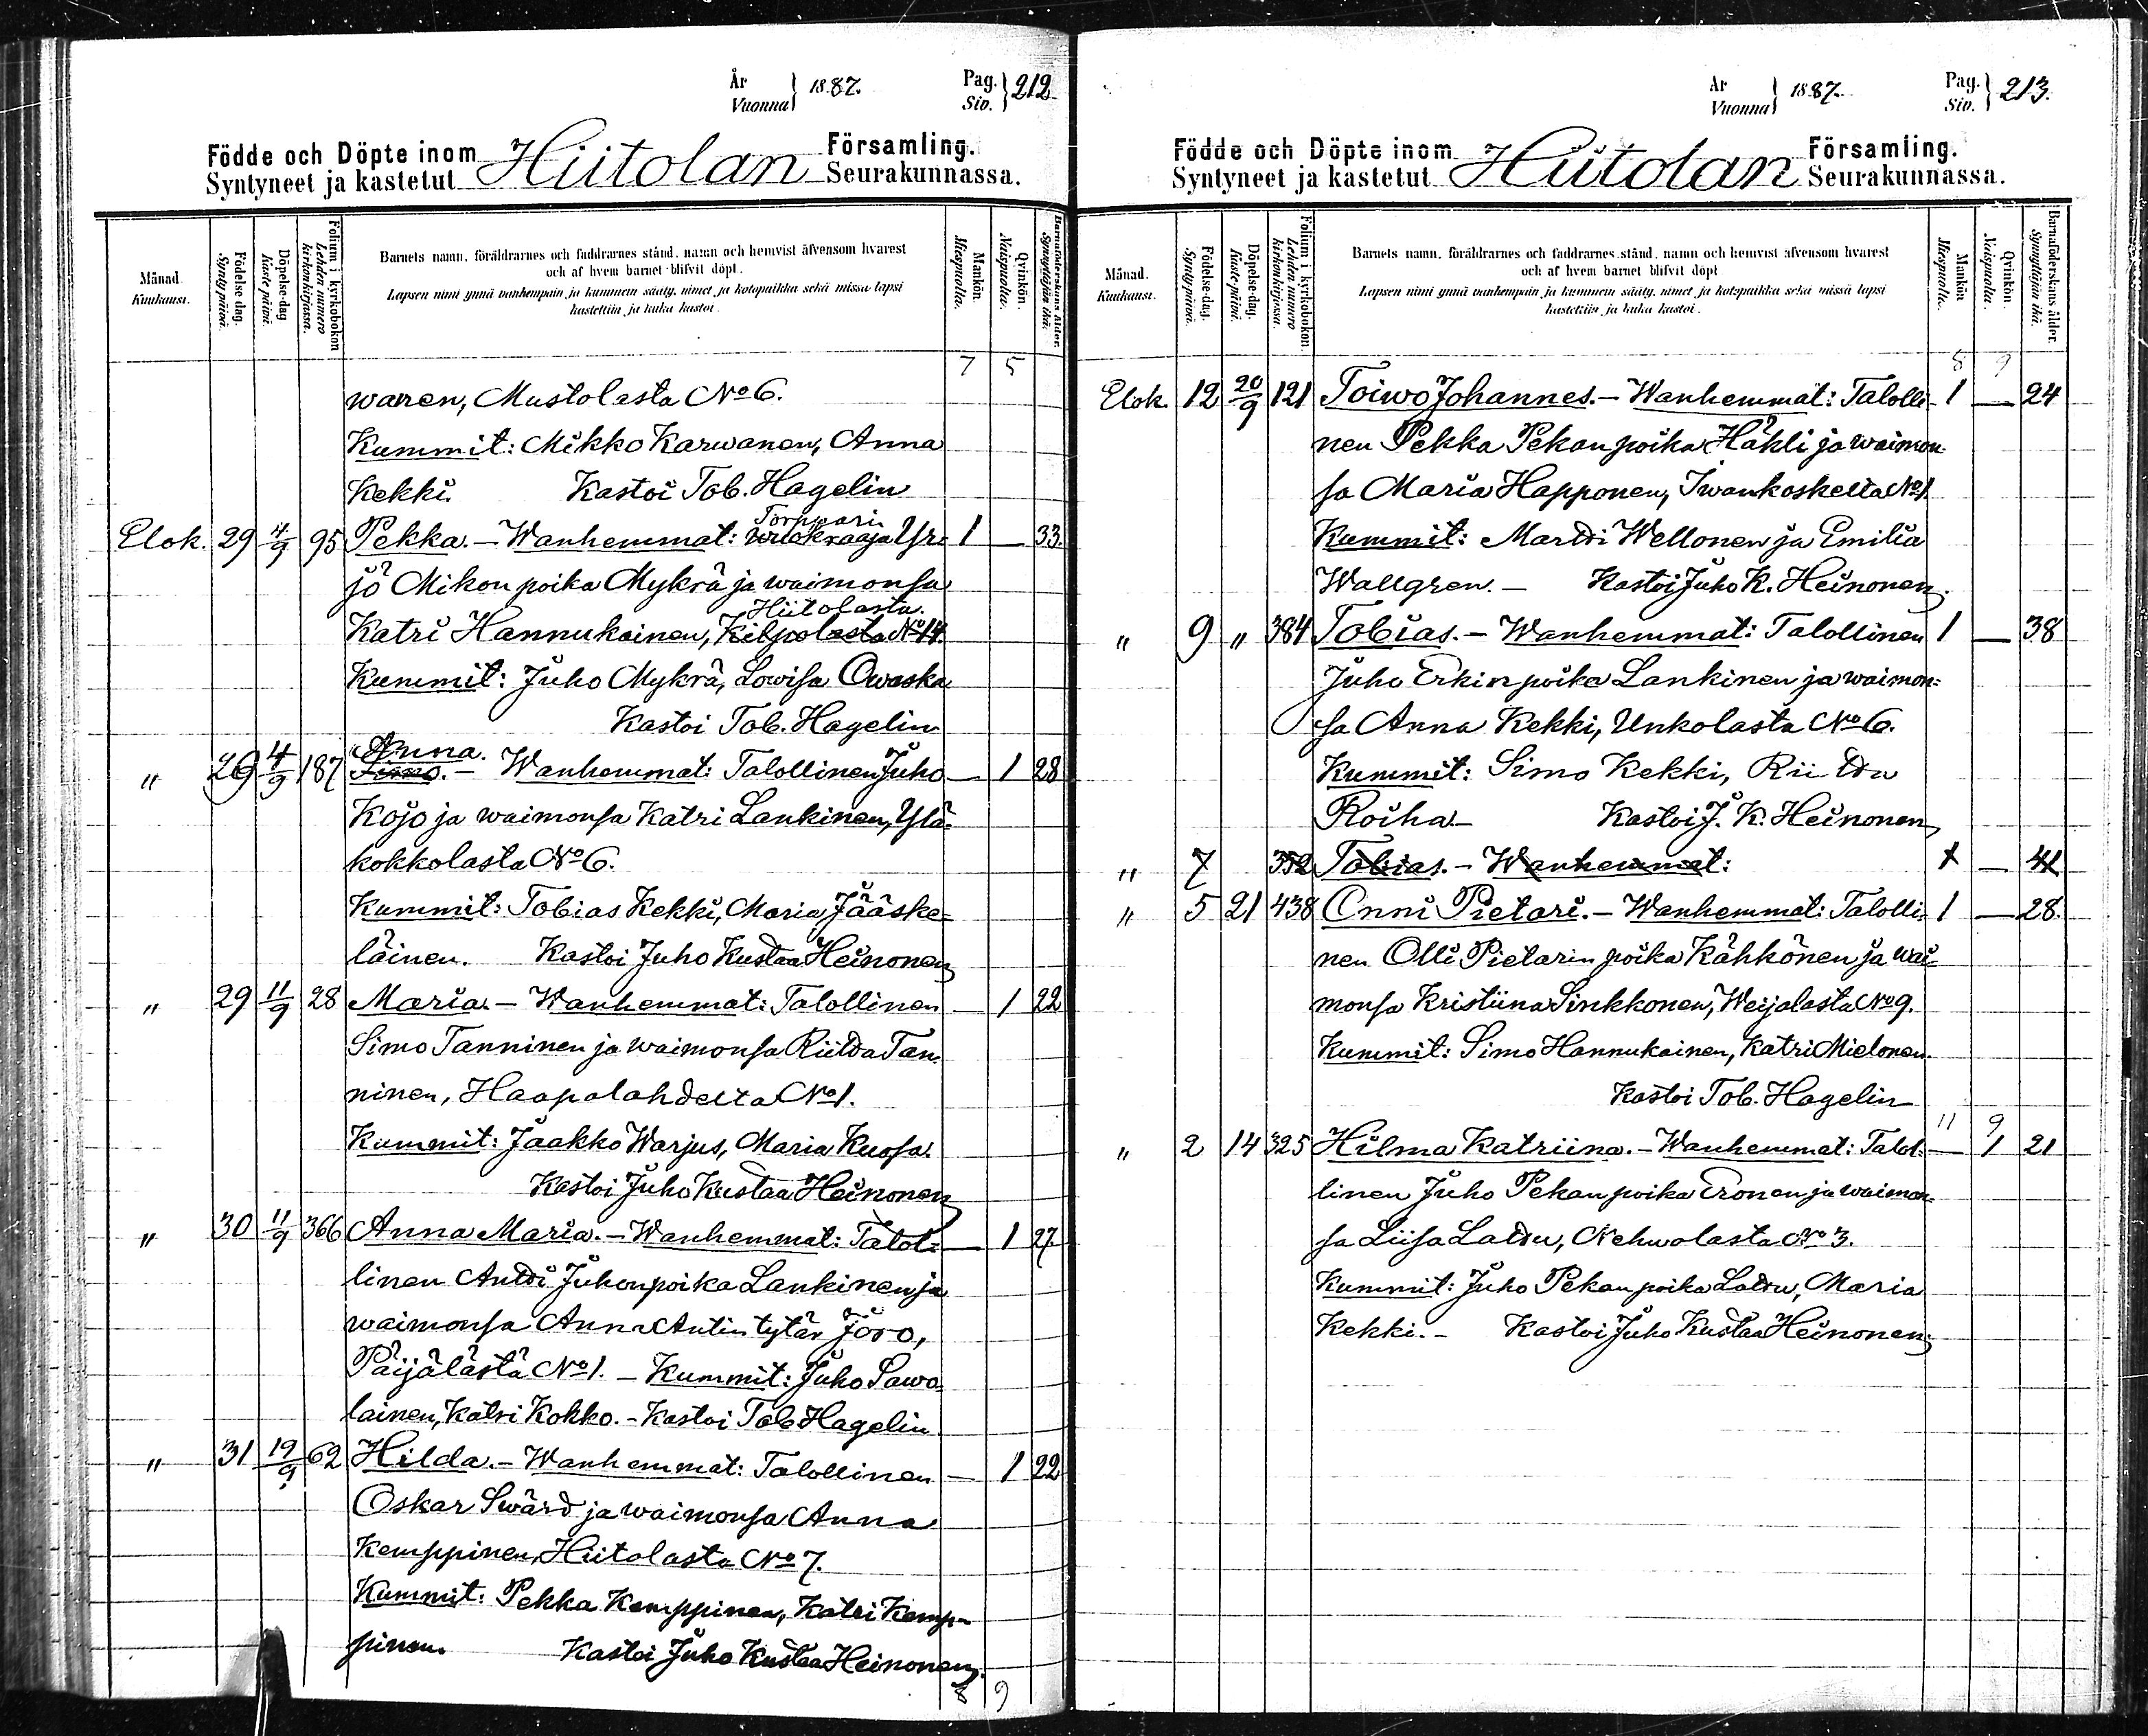 År
Vuonna } 1887.
Pag.
Siv. } 212
Födde och Döpte inom Hiitolan Församling.
Syntyneet ja kastetut Seurakunnassa.
Månad.
Kuukausi.
Födelse dag.
Syntypäivä.
Döpelse-dag
Kaste päivä.
Folium i kyrkobokon
Lehden numero
kirkonkirjassa.
Barnets namn, föräldrarnes och faddrarnes stånd, namn och hemvist äfvensom hvarest
och af hvem barnet blifvit döpt.
Lapsen nimi ynnä vanhempain ja kummein sääty, nimet ja kotopaikka sekä missä lapsi
kastettiin ja kuka kastoi.
Mankön.
Miespuolia.
Qvinkön.
Naispuolia.
Barnaföderskans Ålder.
Synnyttäjän ikä.
7 5
waren, Mustolasta No 6.
Kummit: Mikko Karwanen, Anna
Kekki. Kastoi Tob. Hagelin
Torppari
Elok. 29 4/9 95 Pekka. – Wanhemmat: Wuokraaja Yr- 1 — 33.
jö Mikonpoika Mykrä ja waimonsa
Hiitolasta.
Katri Hannukainen, Kilpolasta No 14.
Kummit: Juho Mykrä, Lowisa Owaska
Kastoi Tob. Hagelin
Anna.
" 29 4/9 187 – Wanhemmat: Talollinen Juho — 1 28
Kojo ja waimonsa Katri Lankinen, Ylä-
kokkolasta No 6.
Kummit: Tobias Kekki, Maria Jääske-
läinen. Kastoi Juho Kustaa Heinonen
" 29 11/9 28 Maria. – Wanhemmat: Talollinen — 1 22
Simo Tanninen ja waimonsa Riitta Tan-
ninen, Haapalahdelta No 1.
Kummit: Jaakko Warjus, Maria Kuosa.
Kastoi Juho Kustaa Heinonen
" 30 11/9 366 Anna Maria. – Wanhemmat: Talol- — 1 27.
linen Antti Juhonpoika Lankinen ja
waimonsa Anna Antintytär Joro,
Päijälästä No 1. – Kummit: Juho Sawo-
lainen, Katri Kokko. – Kastoi Tob Hagelin
" 31 19/9 62 Hilda. – Wanhemmat: Talollinen — 1 22
Oskar Swärd ja waimonsa Anna
Kemppinen, Hiitolasta No 7.
Kummit: Pekka Kemppinen, Katri Kemp-
pinen. Kastoi Juho Kustaa Heinonen.
8 9
År
Vuonna } 1887.
Pag.
Siv. } 213.
Födde och Döpte inom Hiitolan Församling.
Syntyneet ja kastetut Seurakunnassa.
Månad.
Kuukausi.
Födelse-dag.
Syntypäivä.
Döpelse-dag.
Kaste-päivä.
Folium i kyrkobokon.
Lehden numero
kirkonkirjassa.
Barnets namn, föräldrarnes och faddrarnes stånd, namn och hemvist äfvensom hvarest
och af hvem barnet blifvit döpt
Lapsen nimi ynnä vanhempain ja kummein sääty, nimet ja kotopaikka sekä missä lapsi
kastettiin ja kuka kastoi.
Mankön
Miespuolia.
Qvinkön.
Naispuolia.
Barnaföderskans ålder.
Synnyttäjän ikä.
8 9
Elok. 12 20/9 121 Toiwo Johannes. – Wanhemmat: Talolli- 1 — 24
nen Pekka Pekanpoika Häkli ja waimon-
sa Maria Happonen, Iwankoskelta No 1.
Kummit: Martti Wellonen ja Emilia
Wallgren. – Kastoi Juho K. Heinonen.
" 9 " 384 Tobias. – Wanhemmat: Talollinen 1 — 38
Juho Erkinpoika Lankinen ja waimon-
sa Anna Kekki, Unkolasta No 6.
Kummit: Simo Kekki, Riitta
Roiha – Kastoi J. K. Heinonen
" 7 352 Tobias. – Wanhemmat: 1 — 41
" 5 21 438 Onni Pietari. – Wanhemmat: Talolli- 1 — 28.
nen Olli Pietarinpoika Kähkönen ja wai-
monsa Kristiina Sinkkonen, Weijalasta No 9.
Kummit: Simo Hannukainen, Katri Mielonen
Kastoi Tob. Hagelin
11 9
" 2 14 325 Hilma Katriina. – Wanhemmat: Talol- — 1 21
linen Juho Pekanpoika Eronen ja waimon-
sa Liisa Lattu, Nehwolasta No 3.
Kummit: Juho Pekanpoika Lattu, Maria
Kekki. – Kastoi Juho Kustaa Heinonen.